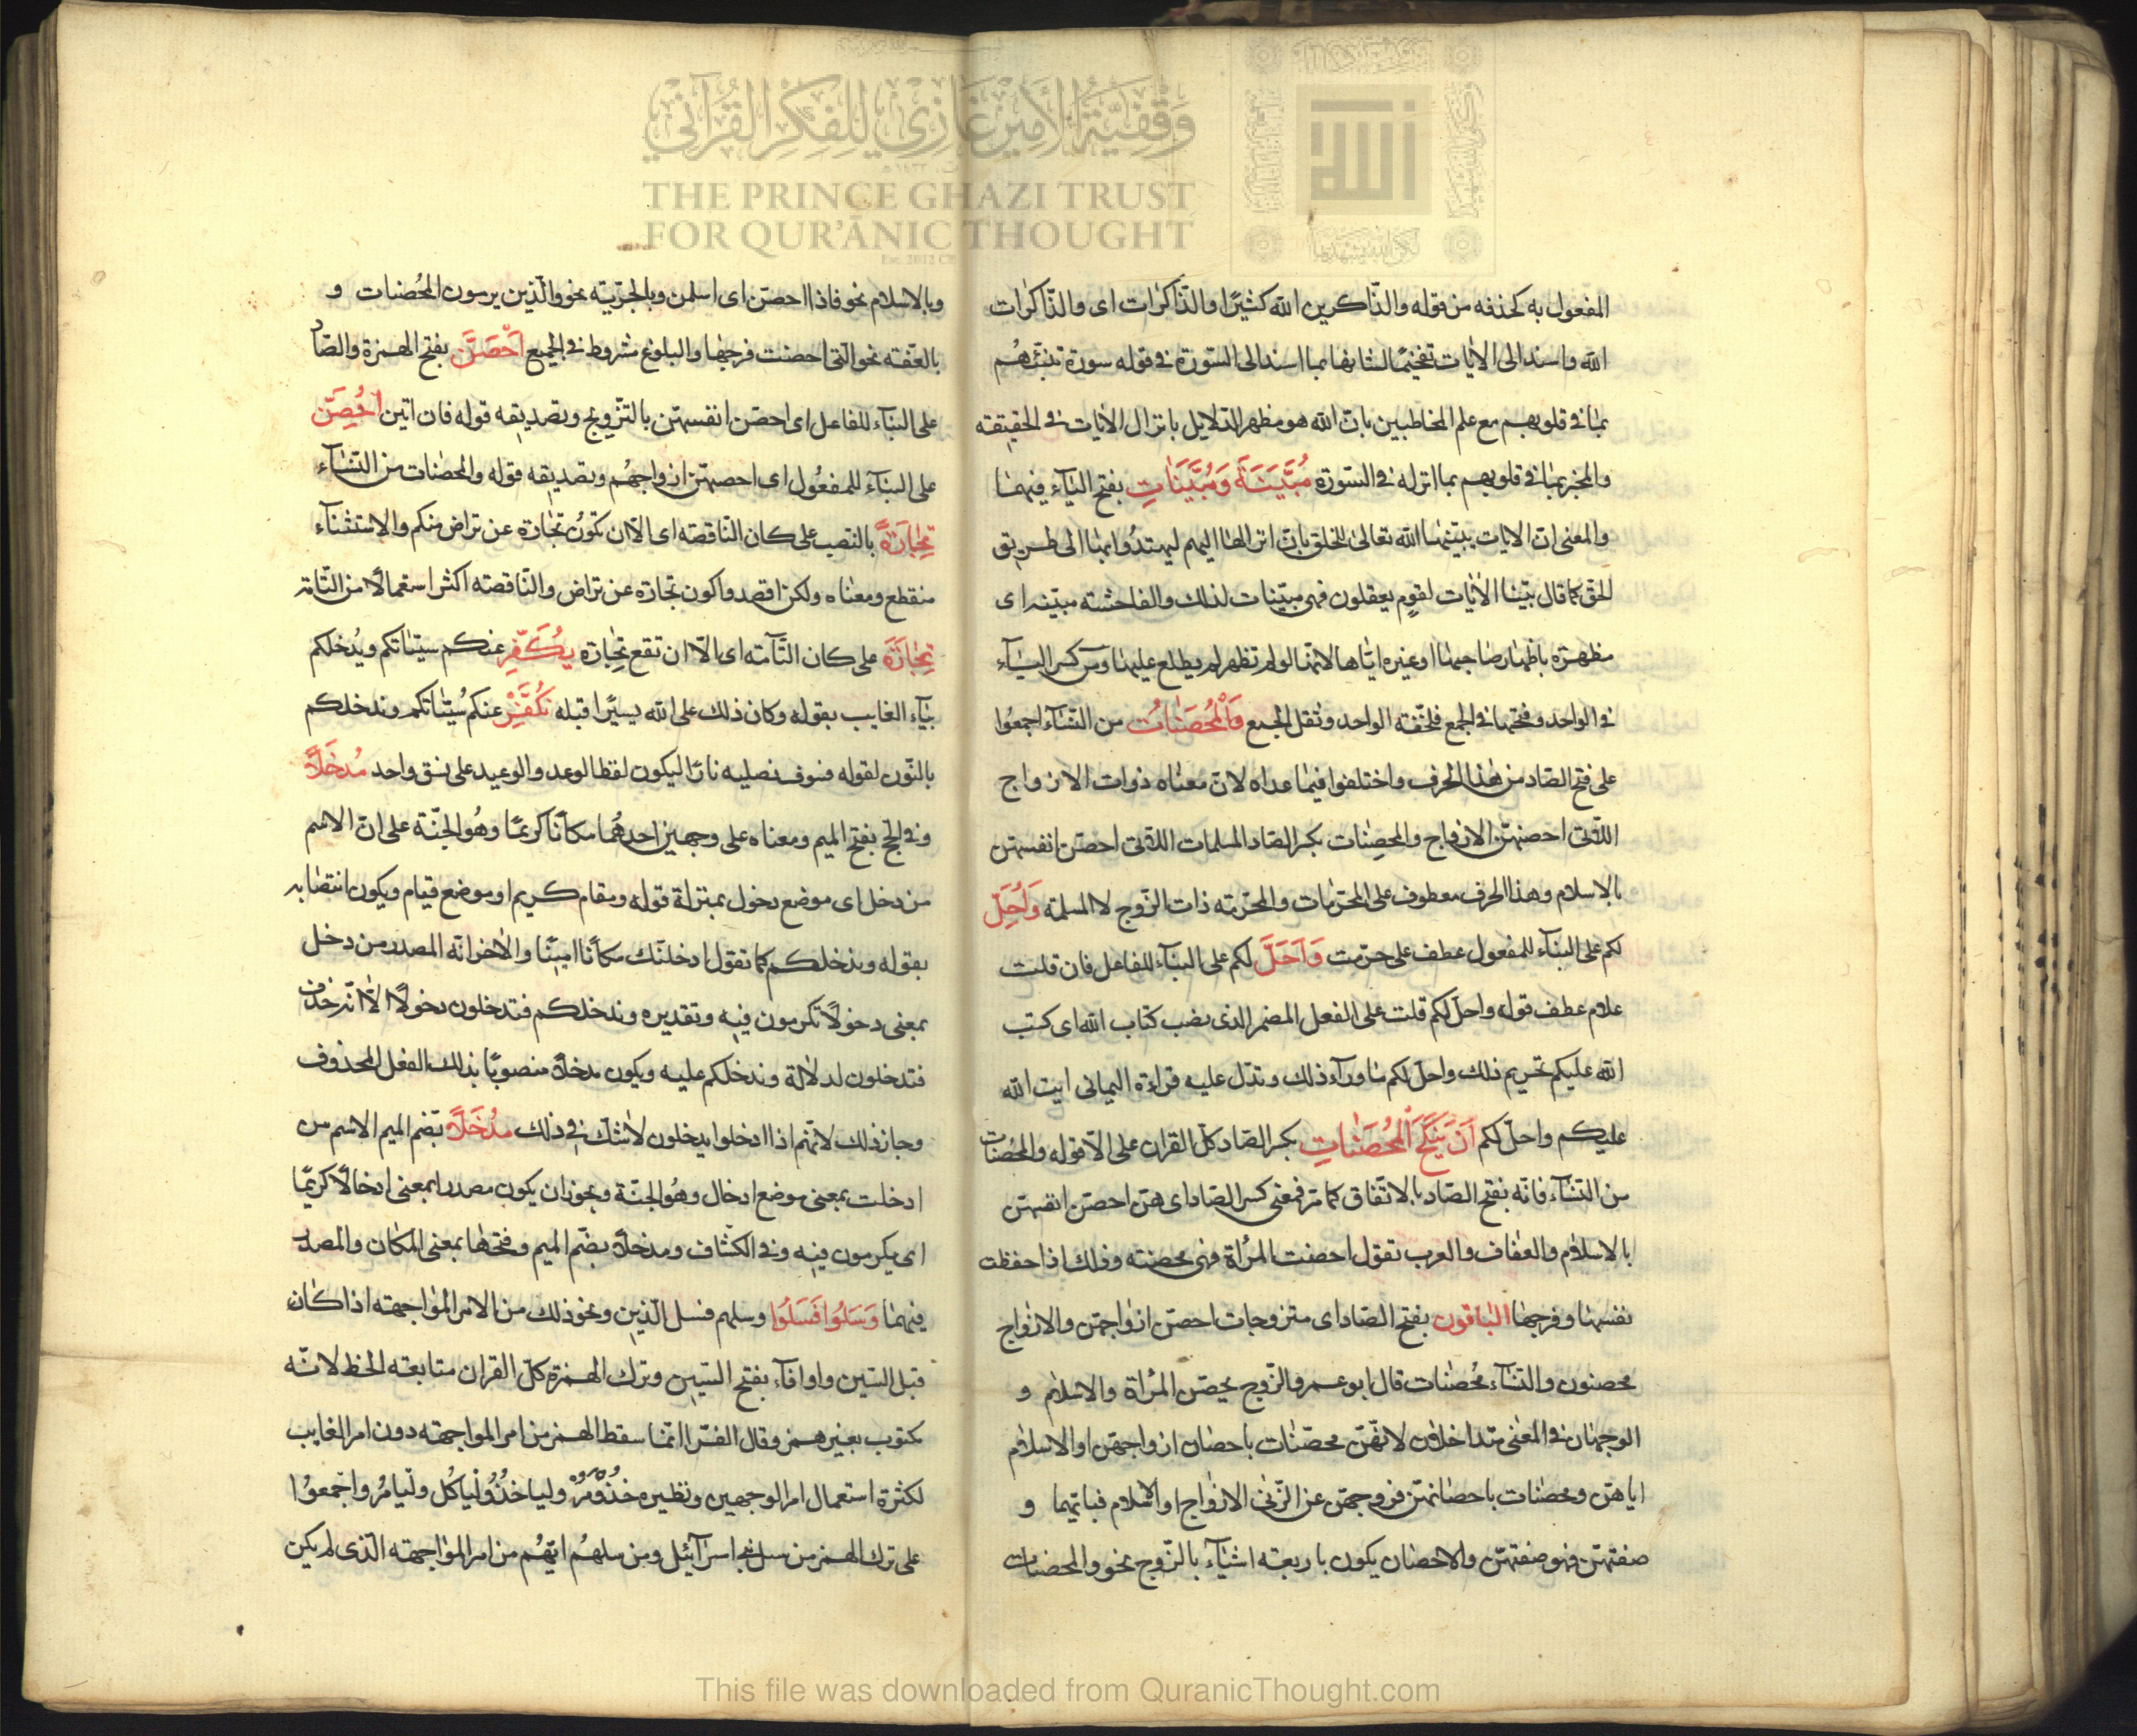 وقفية الأمير غازي للفكر القرآني
THE PRINCE GHAZI TRUST
FOR QUR'ĀNIC THOUGHT
المفعول به لحذفه من قوله والذاكرين الله كثيرًا والذاكرات اى والذاكرات
الله واسند الى الايات تفخيمًا لشانها بما اسند الى السّورة فى قوله سورة تنبّئهُم
بما فى قلوبهم مع علم المخاطبين بانّ الله هو مظهر الدّلايل بانزال الايات فى الحقيقته
والمخبر بما فى قلوبهم بما انزله فى السّورة مُبَيَّنَةً وَمُبَيَّنَاتٍ بفتح اليآء فيهما
والمعنى انّ الايات بيّنها الله تعالى للخلق بانّ انزالها اليهم ليهتدُوا بها الى طريق
الحقّ كما قال بيّنا الايات لقوم يعقلون فهى مبيّنات لذلك والفاحشته مبيّنه اى
مظهرة باظهار صاحبها اوغيره ايّاها لانها لو لم تظهر لم يطلع عليها ومن كسر اليآء
فى الواحد وفتحها فى الجمع فلخفّته الواحد وثقل الجمع وَالْمُحْصَنَاتُ من النّسآء اجمعُوا
على فتح الصّاد من هذا الحرف واختلفوا فيما عداه لانّ معناه ذوات الازواج
اللّاتى احصنهنّ الازواج والمحصِنات بكسر الصّاد المسلمات اللّاتى احصنّ انفسهنّ
بالاسلام وهذا الحرف معطوف على المحرّمات والمحرّمته ذات الزّوج لا المسلمة وَاُحِلَّ
لكم على البنآء للمفعول عطف على حرّمت وَاَحَلَّ لكم على البنآء للفاعل فان قلت
علام عطف قوله واحلّ لكم قلت على الفعل المضمر الذى نصب كتاب الله اى كتب
الله عليكم تحريم ذلك واحلّ لكم ما ورآء ذلك وتدلّ عليه قراءة اليمانى ايت الله
عليكم واحلّ لكم اَنْ يَنْكِحَ الْمُحْصَنَاتِ بكسر الصّاد كلّ القران على الّا قوله والمحصَنات
من النّسآء فانّه بفتح الصّاد بالاتّفاق كما مرّ فمعنى كسر الصّاد اى هنّ احصنّ انفسهنّ
بالاسلام والعفاف والعرب تقول احصنت المرأة فهى محصنته وذلك اذا حفظت
نفسها وفرجها الباقون بفتح الصّاد اى متزوجات احصنّ ازواجهنّ والازواج
محصنون والنّسآء محصَنات قال ابو عمرو الزّوج يحصّن المرأة والاسلام و
الوجهان فى المعنى متداخلان لانّهنّ محصّنات باحصان ازواجهنّ او الاسلام
اياهنّ ومحصنات باحصانهنّ فروجهنّ عن الزّنى الازواج او الاسلام و
صفتهنّ فهو صفتهنّ والاحصان يكون باربعته اشيآء بالزّوج نحو والمحصنات
وبالاسلام نحو فاذا احصنّ اى اسلمن وبالحرّيته نحو والّذين يرمون المحُصنات و
بالعفّته نحو الّتى احصنت فرجها والبلوغ شروط فى الجميع اَحْصَنَّ بفتح الهمزة والصّاد
على البنآء للفاعل اى احصنّ انفسهنّ بالتزويج وتصديقه قوله فان اتين اُحْصِنَّ
على البنآء للمفعُول اى احصنهنّ ازواجهُم وتصديقه قوله والمحصنات من النّسآء
تِجَارَةً بالنّصب على كان النّاقصته اى الّا ان تكونُ تجارة عن تراض منكم والاستثنآء
منقطع ومعناه ولكن اقصدوا كون تجارة عن تراض والنّاقصته اكثر استعمالًا من التّامّه
تِجَارَةٌ على كان التّآمته اى الّا ان تقع تجارة يُكَفِّر عنكم سيّئاتكم ويُدخلكم
بيآء الغايب بقوله وكان ذلك على الله يسيرًا قبله نُكَفِّرْ عنكم سُيّئاتكم وندخلكم
بالنّون لقوله فسوف نصليه نارًا ليكون لفظ الوعد والوعيد على نسق واحد مَدْخَلًا
وفى الحجّ بفتح الميم ومعناه على وجهين احدهُما مكانًا كريمًا وهُو الجنّة على انّ الاسم
من دخل اى موضع دخول بمنزلة قوله ومقام كريم او موضع قيام ويكون انتصابه
بقوله وندخلكم كما تقول ادخلتك مكانًا امينًا والاخر انّه المصدر من دخل
بمعنى دخولًا تكرمون فيه وتقديره وندخلكم فتدخلون دخولًا الّا انّه حذف
فتدخلون لدلالة وندخلكم عليه ويكون مدخلًا منصوبًا بذلك الفعل المحذوف
وجاز ذلك لانّهم اذا ادخلوا يدخلون لاشكّ فى ذلك مُدْخَلًا بضم الميم الاسم من
ادخلت بمعنى موضع ادخال وهُو الجنّة ويجوز ان يكون مصدرا بمعنى ادخالًا كريمًا
اى يكرمون فيه وفى الكشاف ومدخلًا بضمّ الميم وفتحها بمعنى المكان والمصدر
فيهما وَسَلُوا فَسَلُوا وسلهم فسل الّذين ونحو ذلك من الامر المواجهته اذا كان
قبل السّين واو او فآء بفتح السّين وترك الهمزة كلّ القران متابعته الخط لانّه
مكتوب بغير همز وقال الفرّا انّما سقط الهمز من امر المواجهته دون امر الغايب
لكثرة استعمال امر الوجهين ونظيره خذ ومُرْ وليا خذُ وليا كُل وليا مُر واجمعوُا
على ترك الهمز من سل بنى اسرآئيل ومن سلهُم ايّهُم من امر المواجهته الّذى لم يكن
This file was downloaded from QuranicThought.com